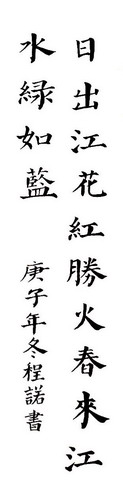 日出江花紅勝火春來江
水緑如藍
庚子年冬程諾書